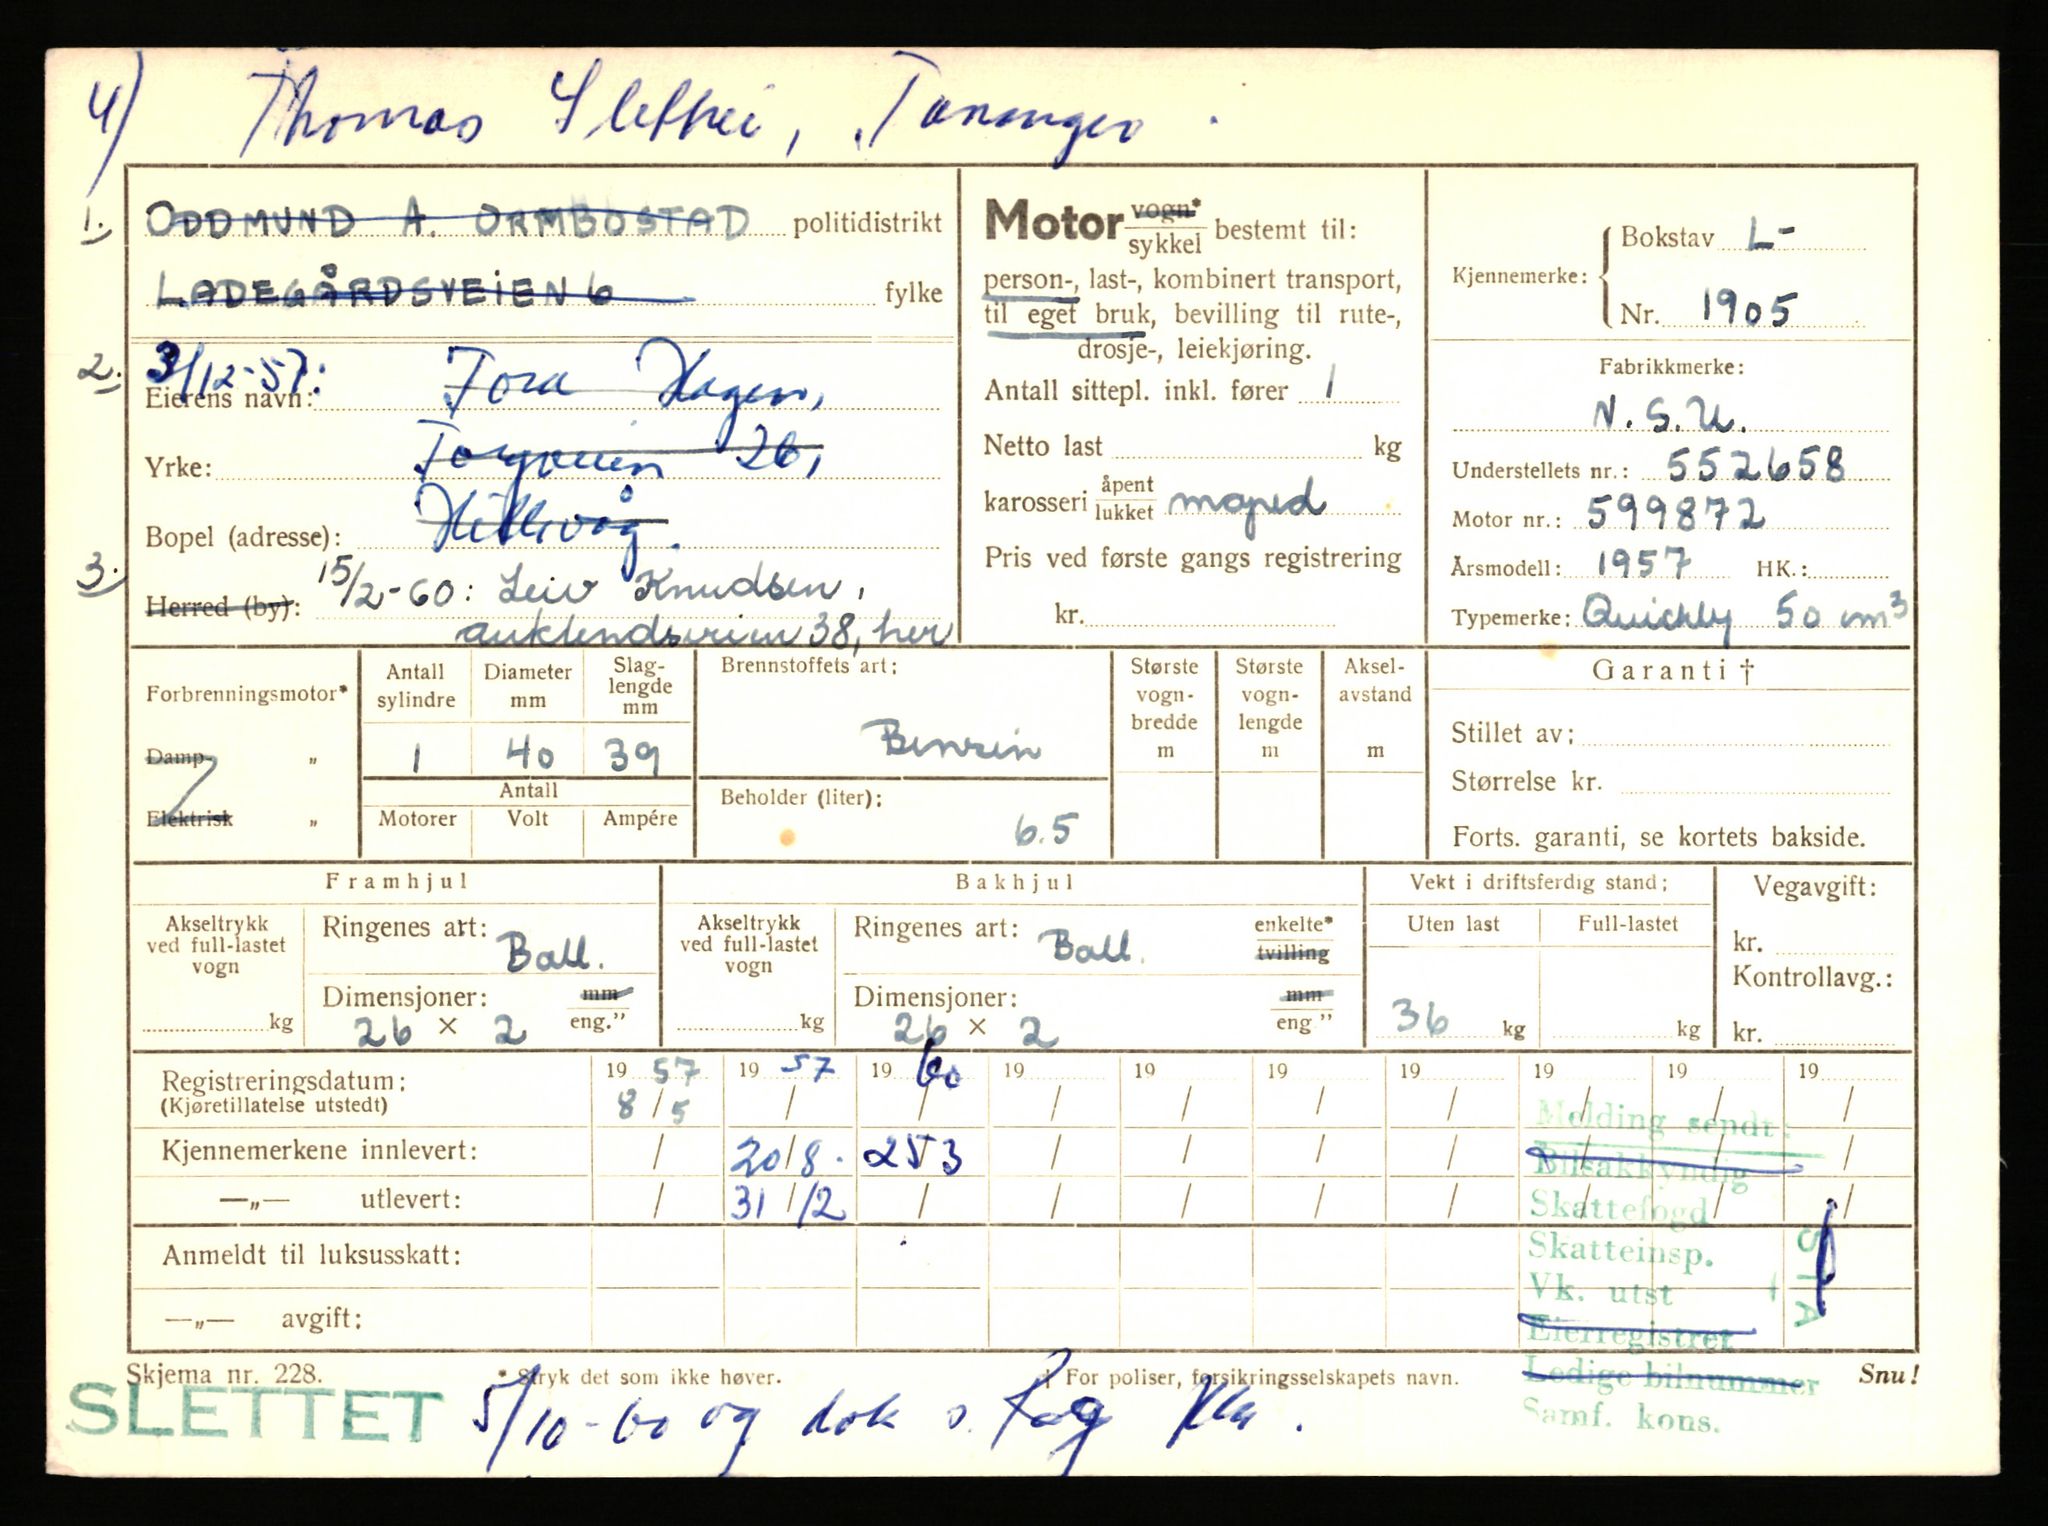 4) Thomas Slettei, Tananger.
1. ODDMUND A. ORMBOSTAD politidistrikt
LADEGÅRDSVEIEN 6 fylke
2. 3/12-57:
Eierens navn: Tora Hagen,
Yrke: Torgveien 26,
Bopel (adresse): Hillevåg.
3. Herred (by): 15/2-60: Leiv Knudsen,
auklendsveien 38, her
Motor vogn* sykkel bestemt til:
person-, last-, kombinert transport,
til eget bruk, bevilling til rute-,
drosje-, leiekjøring.
Antall sittepl. inkl. fører 1
Netto last kg
karosseri åpent lukket moped
Pris ved første gangs registrering
kr.
Kjennemerke: Bokstav L-
Nr. 1905
Fabrikkmerke:
N.S.U.
Understellets nr.: 552658
Motor nr.: 599872
Årsmodell: 1957 HK.:
Typemerke: Quickly 50 cm3
Forbrenningsmotor*
Damp- „
Elektrisk „
Antall sylindre Diameter mm Slag-lengde mm
1 40 39
Antall
Motorer Volt Ampére
Brennstoffets art:
Benzin
Beholder (liter):
6.5
Største vogn-bredde m
Største vogn-lengde m
Aksel-avstand m
Garanti †
Stillet av:
Størrelse kr.
Forts. garanti, se kortets bakside.
Framhjul
Akseltrykk ved full-lastet vogn
kg
Ringenes art: Ball.
Dimensjoner: mm
26 x 2 eng."
Bakhjul
Akseltrykk ved full-lastet vogn
kg
Ringenes art: Ball. enkelte* tvilling
Dimensjoner: mm
26 x 2 eng"
Vekt i driftsferdig stand:
Uten last Full-lastet
36 kg kg
Vegavgift:
kr.
Kontrollavg.:
kr.
Registreringsdatum: 19 57 19 57 19 60 19 19 19 19 19 19 19
(Kjøretillatelse utstedt) 8/5 / / / / / / / / /
Kjennemerkene innlevert: / 20/8. 253 / / / / / / /
—„— utlevert: / 31/12 / / / / / / / /
Anmeldt til luksusskatt:
—„— avgift:
Melding sendt:
Bilsakkyndig
Skattefogd
Skatteinsp.
Vk. utst
Eierregistret
Ledige bilnummer
Samf. kons.
Skjema nr. 228. * Stryk det som ikke høver. † For poliser, forsikringsselskapets navn. Snu!
SLETTET 5/10-60 og dok s.